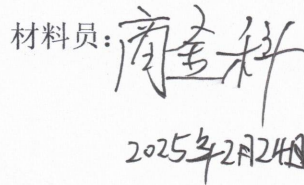 材料员：商金科
2025年2月24日